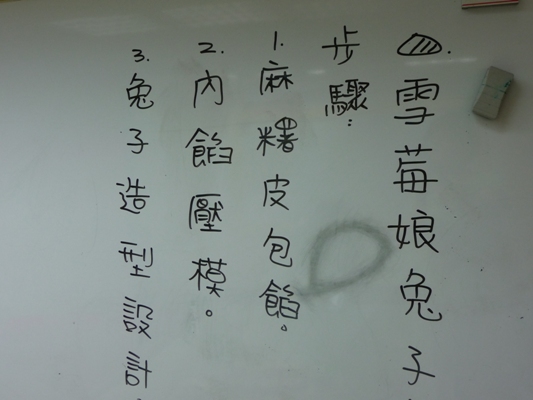 雪莓娘兔子
步驟:
1.麻糬皮包餡。
2.內餡壓模。
3.兔子造型設計